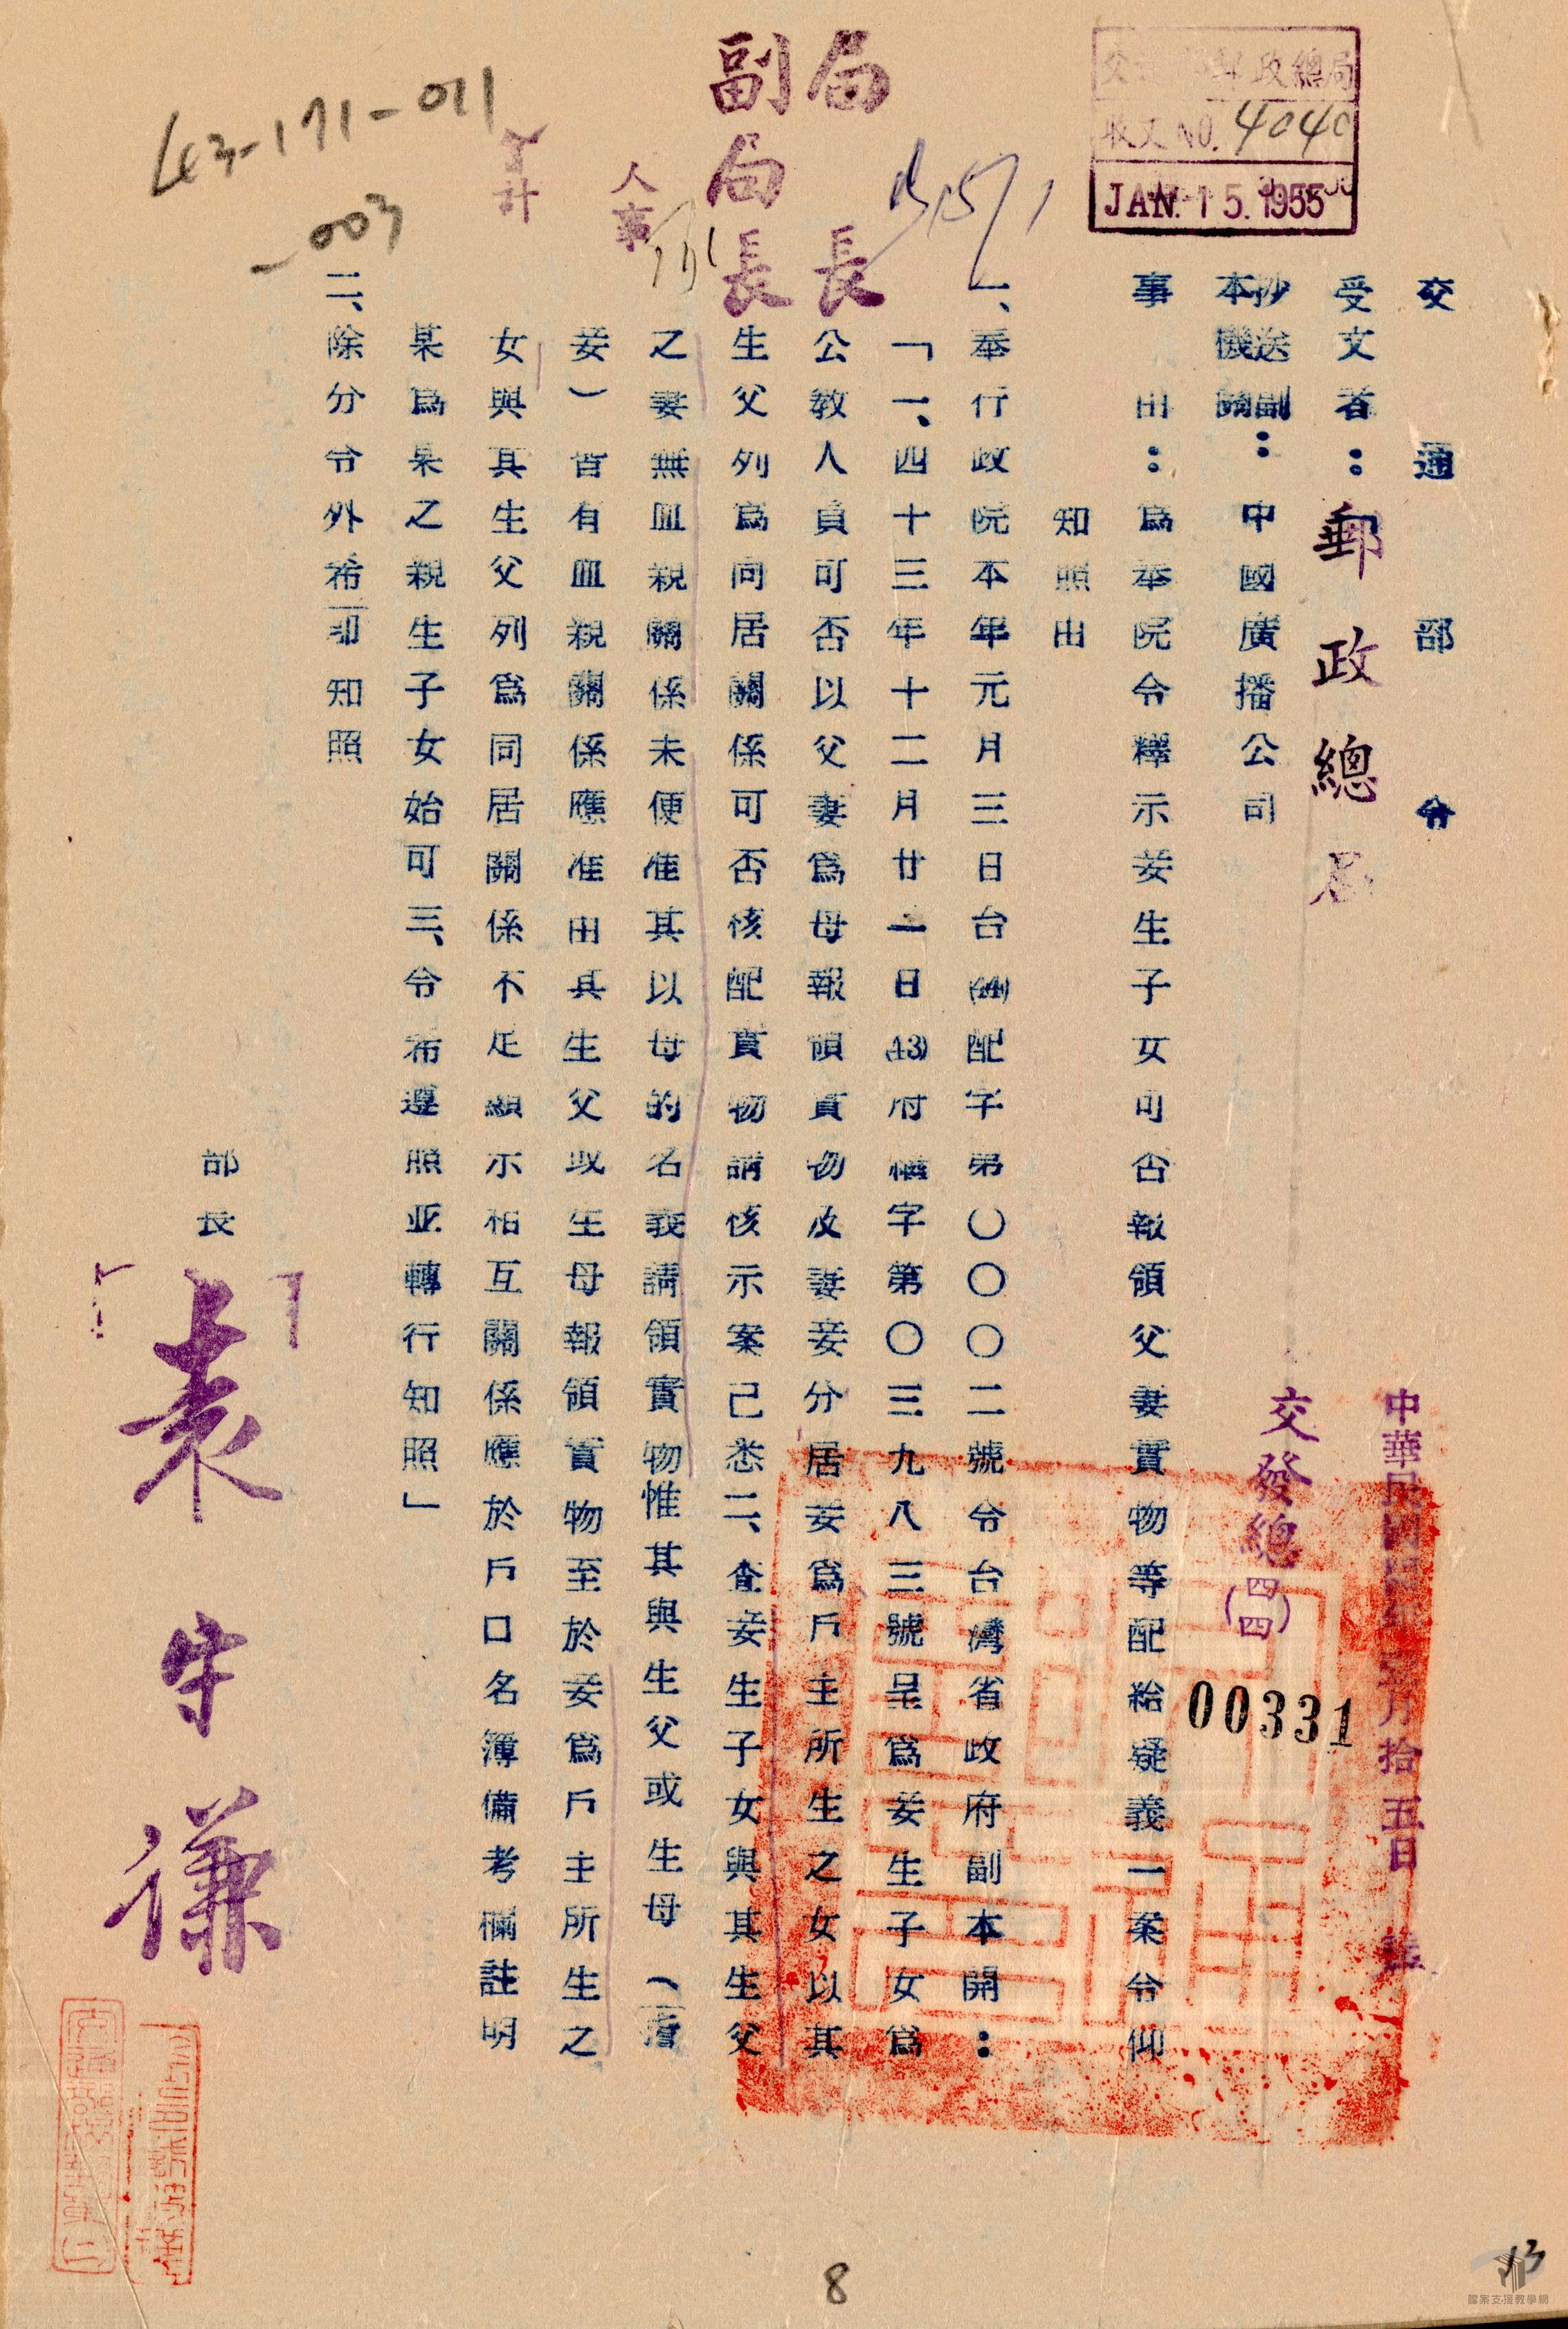 交通部令
中華民國 月拾五日
受文者：郵政總局
交發總(四四)
00331
抄送副：中國廣播公司
本機關
事由：為奉院令釋示妾生子女可否報領父妻實物等配給疑義一案令仰
知照由
一、奉行政院本年元月三日台(44)配字第〇〇〇二號令台灣省政府副本開：
「一、四十三年十二月廿一日(43)府 字第〇三九八三號呈為妾生子女為
公教人員可否以父妻為母報領實物及妻妾分居妾為戶主所生之女以其
生父列為同居關係可否核配實物請核示案己悉二、查妾生子女與其生父
之妻無血親關係未便准其以母的名義請領實物惟其與生父或生母（指
妾）皆有血親關係應准由其生父或生母報領實物至於妾為戶主所生之
女與其生父列為同居關係不足顯示相互關係應於戶口名簿備考欄註明
某為某之親生子女始可三、令希遵照並轉行知照」
二、除分令外希即知照
部長 袁守謙
交 部郵政總局
收文NO. 4040
JAN. 15. 1955
局長
副局長
人事
計
43-171-011
-003
8
13
檔案支援教學網